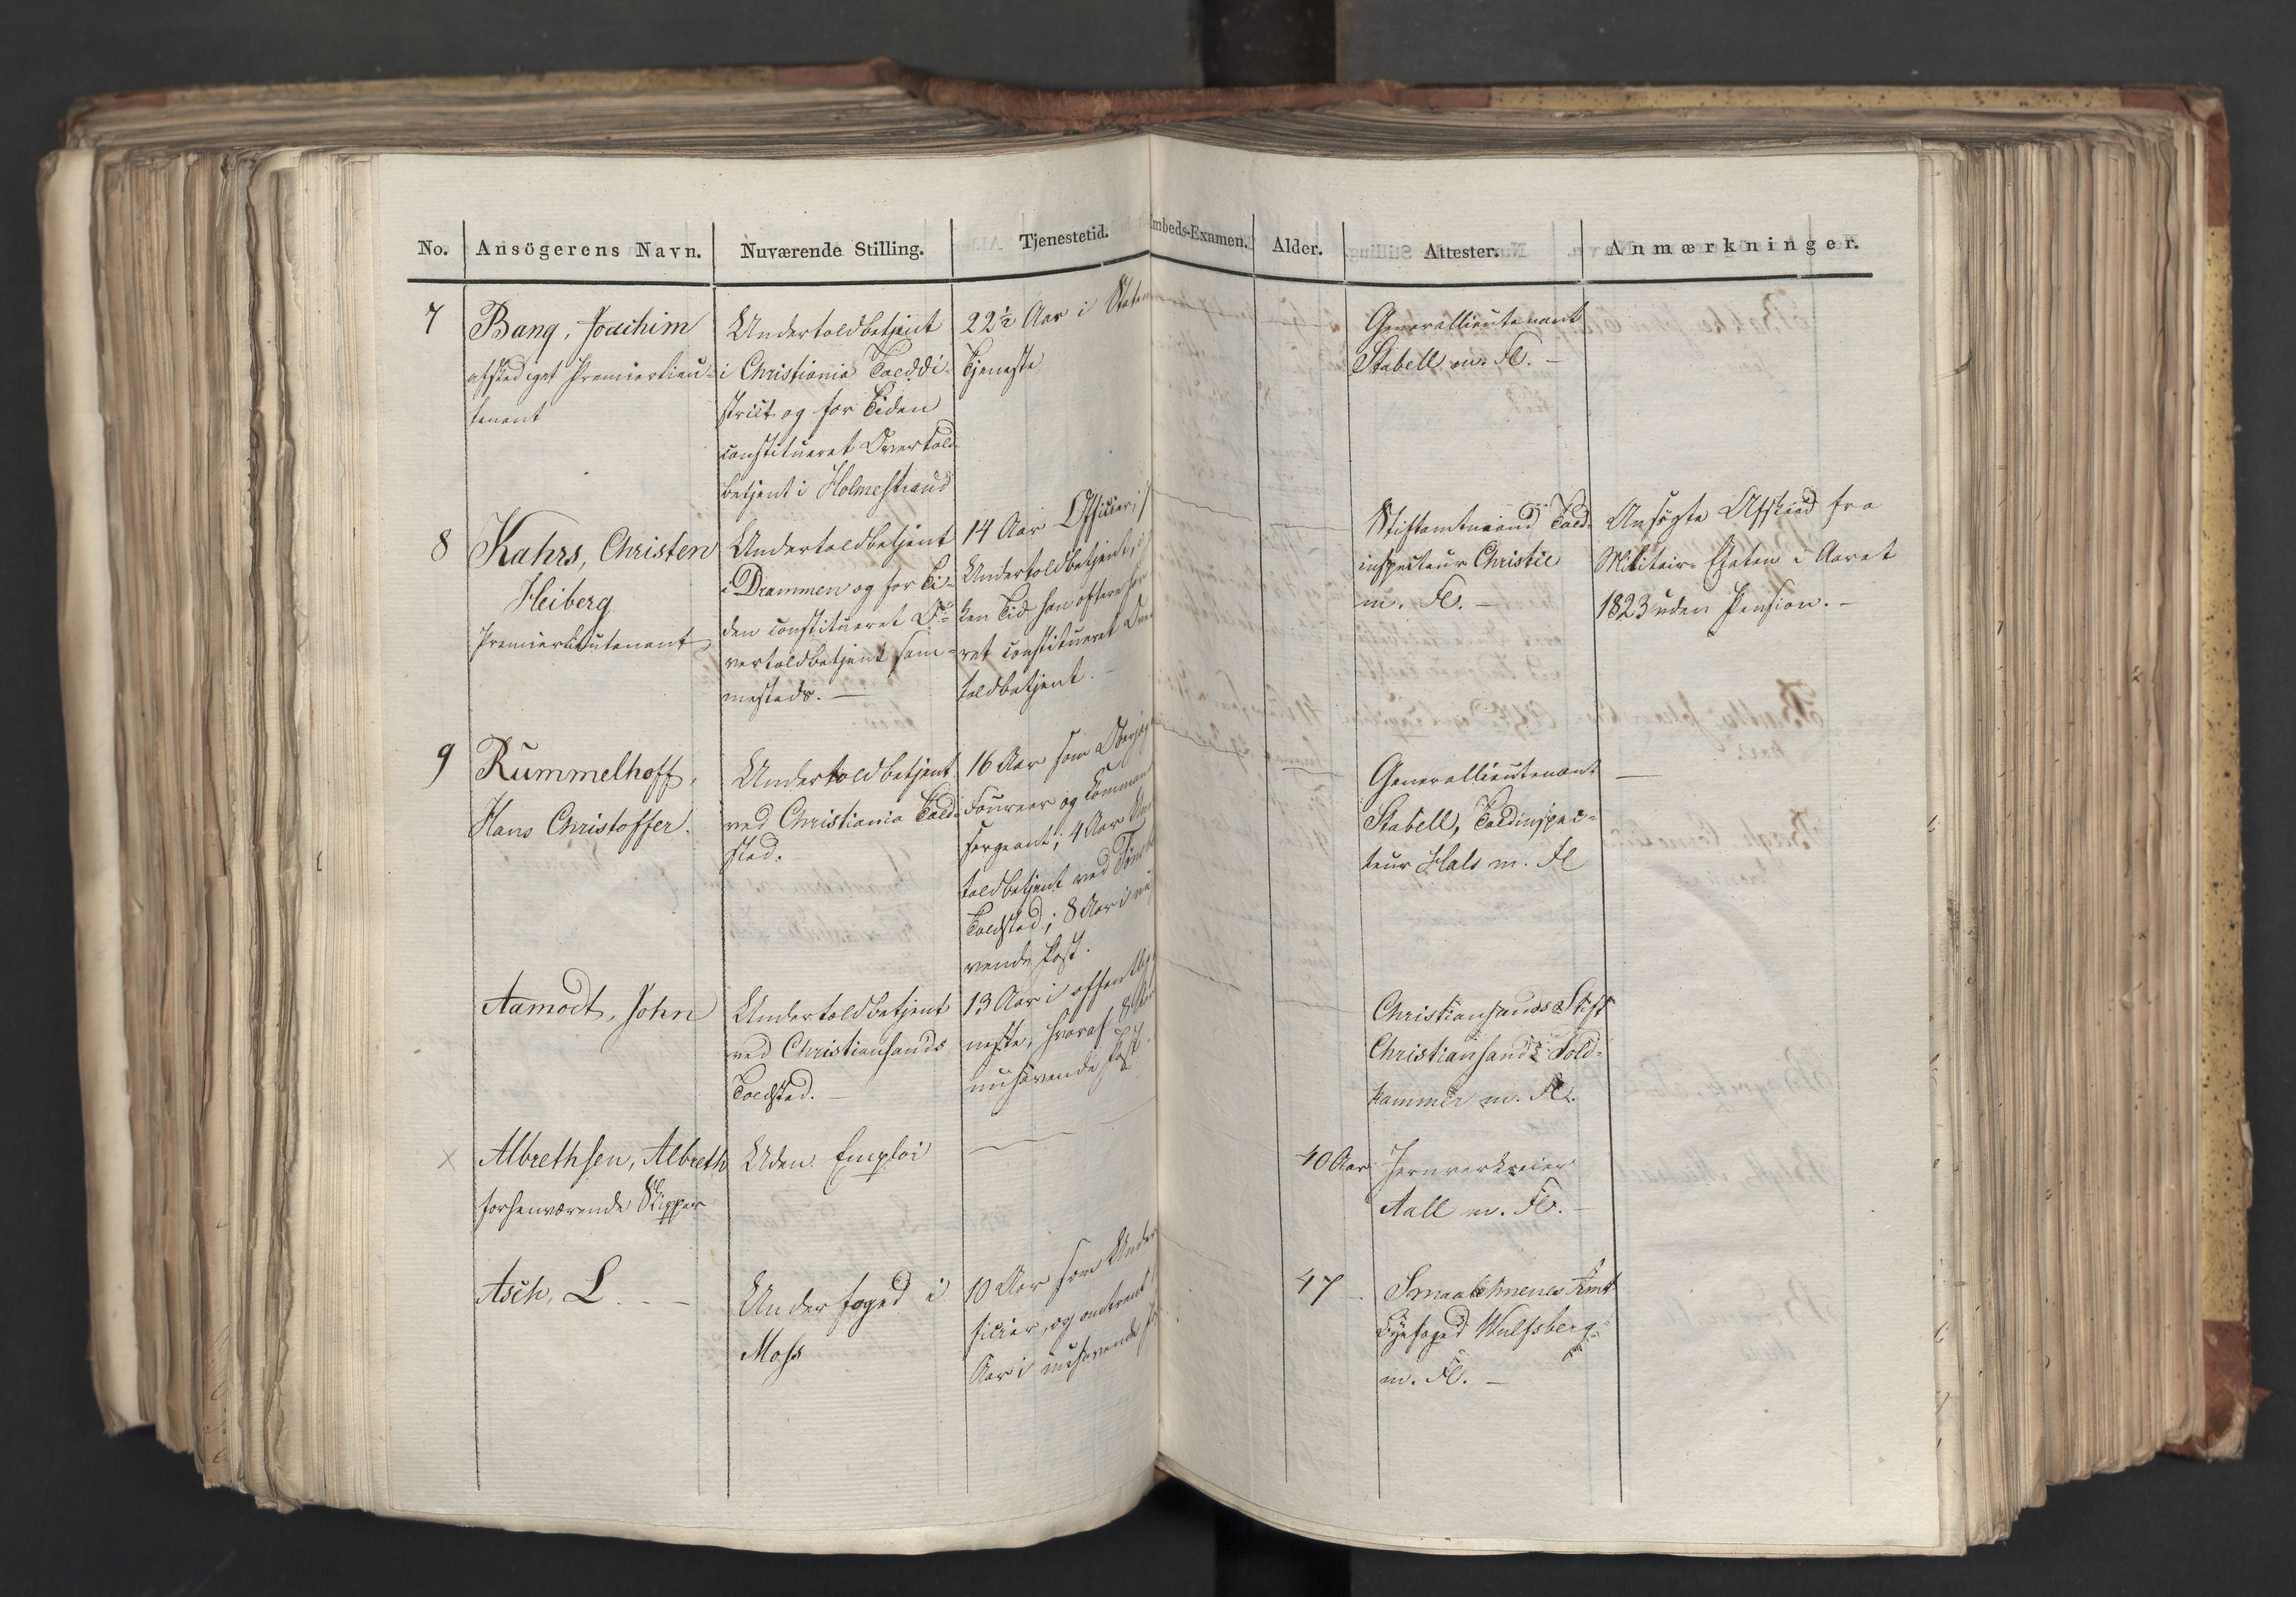 No. Ansögerens Navn. Nuværende Stilling. Tjenestetid. Embeds-Examen. Alder. Attester. Anmærkninger.
7
Bang, Joachim
afskediget Premierlieu-
tenant
Undertoldbetjent
i Christiania Tolddi-
strict og for Tiden
constitueret Overtold-
betjent i Holmestrand
22½ Aar i Statens
Tjeneste
Generallieutenant
Stabell m. Fl. —
8
Kahrs, Christen
Heiberg
Premierlieutenant
Undertoldbetjent
i Drammen og for Ti-
den constitueret O-
vertoldbetjent sam-
mesteds. —
14 Aar Officier,
Undertoldbetjent,
ken Tid han oftere har
ret constitueret Over
toldbetjent. —
Stiftamtmand Told-
inspecteur Christie
m. Fl. —
Ansøgte Afskied fra
Militair-Etaten i Aaret
1823 uden Pension. —
9
Rummelhoff,
Hans Christoffer.
Undertoldbetjent
ved Christiania Told-
sted.
16 Aar som Oberjæg
Foureer og Comman
sergeant; 4 Aar Un
toldbetjent ved Tønsb
Toldsted; 8 Aar i nu
rende Post.
Generallieutenant
Stabell, Toldinspec-
teur Hals m. Fl
—
Aamodt, John
Undertoldbetjent
ved Christiansands
Toldsted. —
13 Aar i offentlig
neste, hvoraf 8 Aar
nuhavende Post.
Christiansands Stift
Christiansands Told-
kammer m. Fl.
x
Albrethsen, Albreth
forhenværende Skipper
Uden Emploi
—
40 Aar
Jernverkseier
Aall m. Fl. —
Asch, L. — —
Underfoged i
Moss
10 Aar som Under
ficier, og omtrent
Aar i nuhavende
47 —
Smaalehnenes Amt
Byefoged Wulfsberg
m. Fl. —